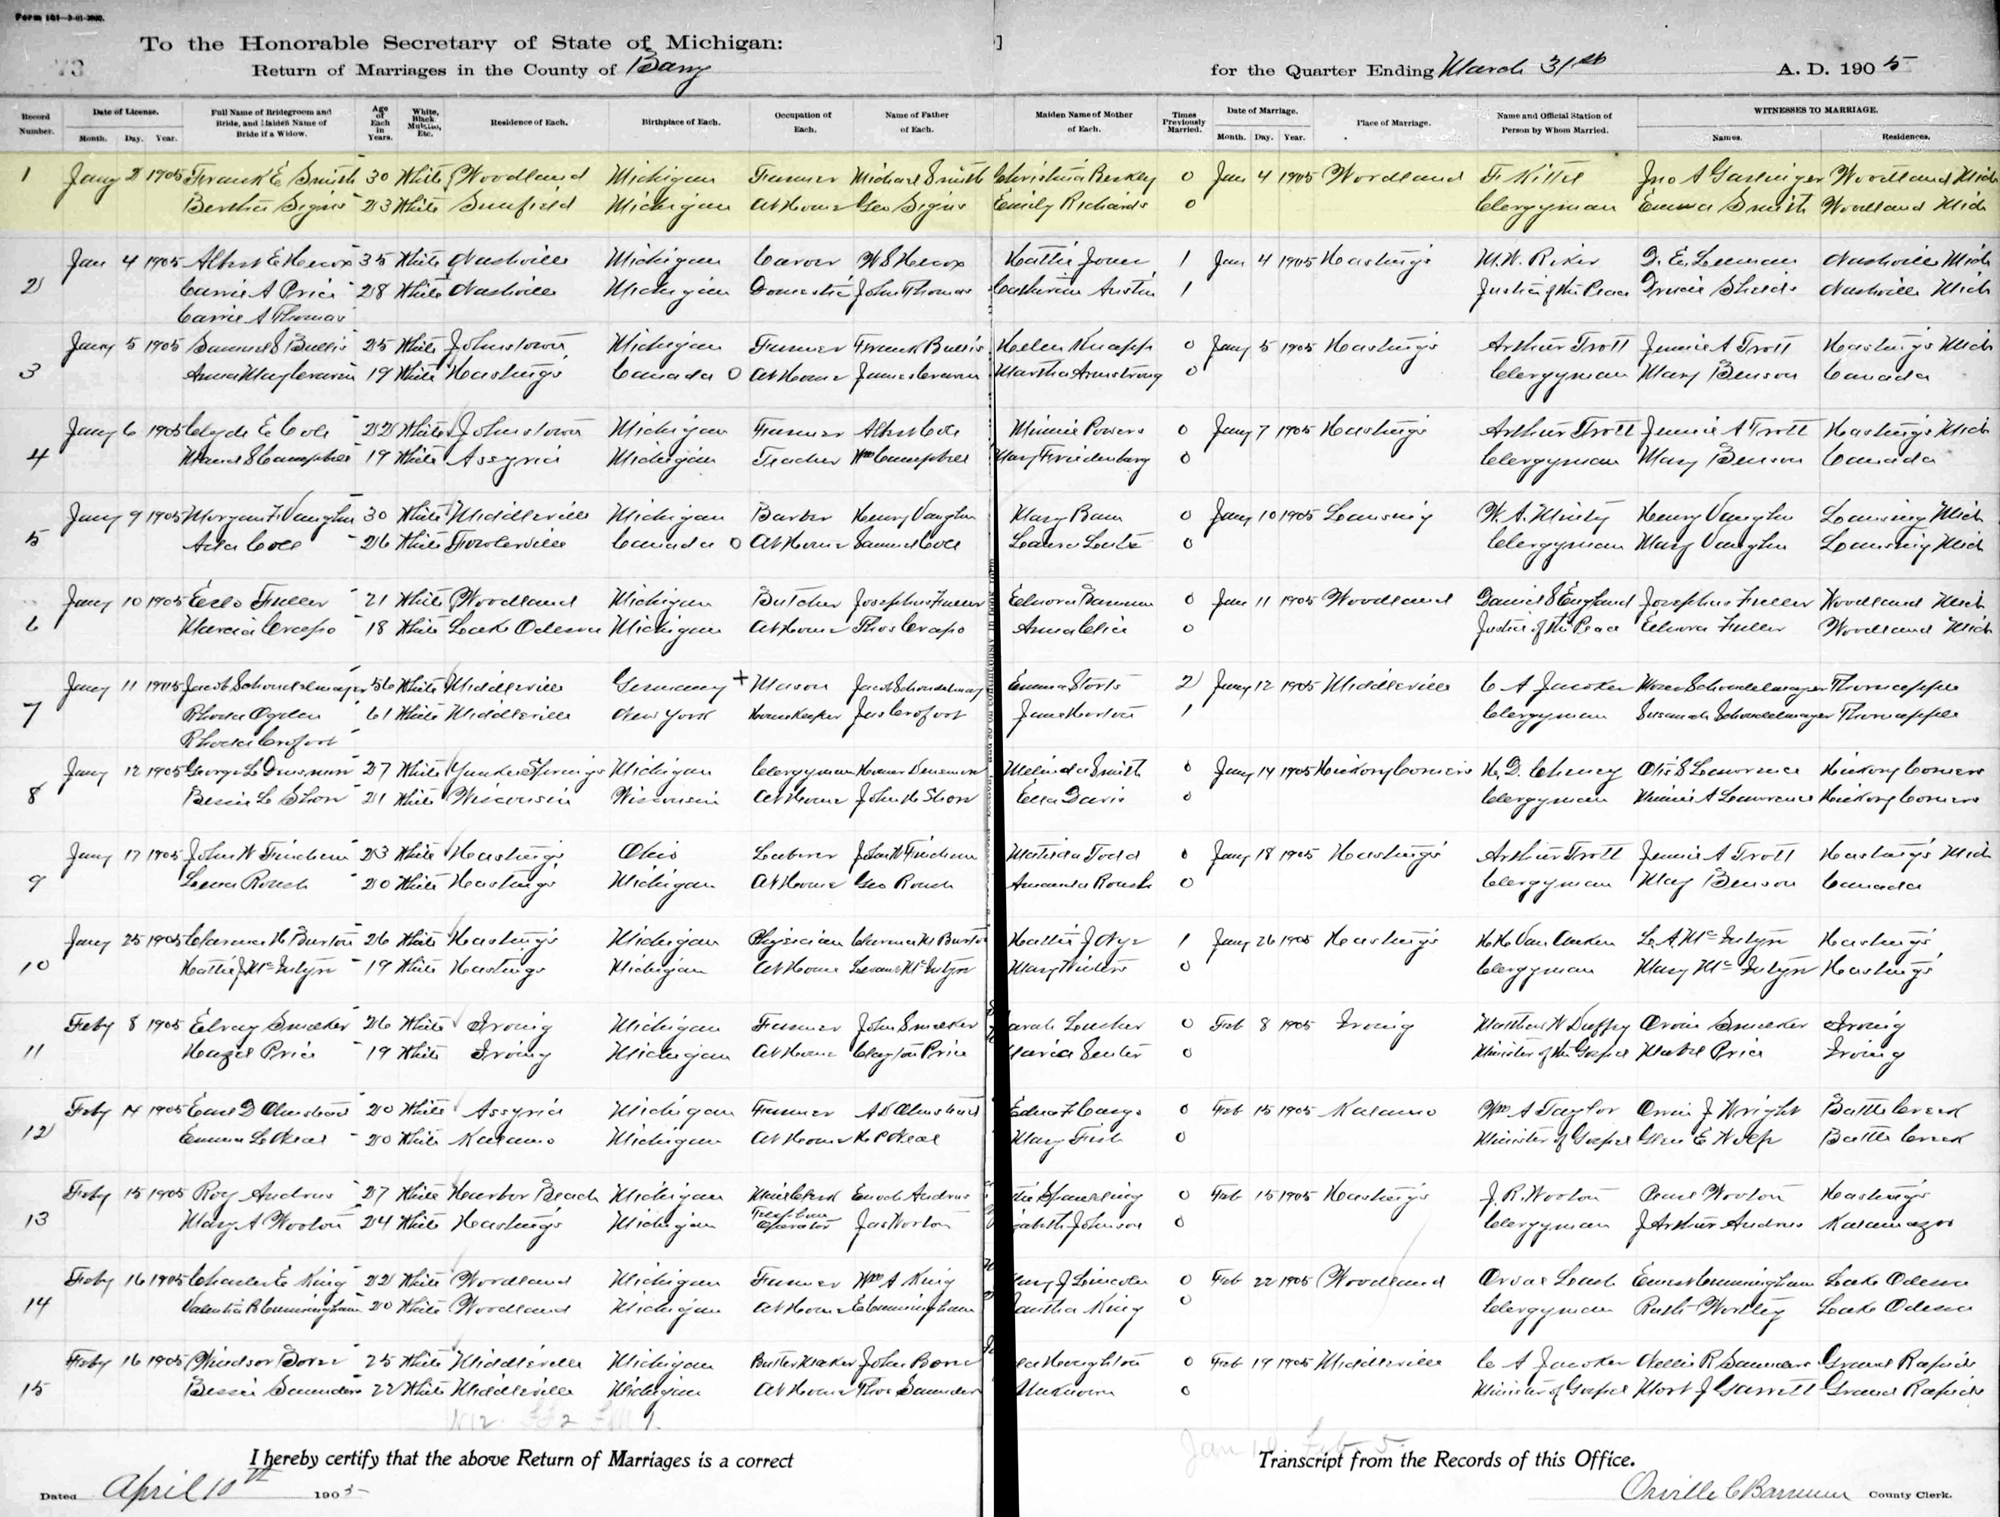 Form 161—3-01-2000.
To the Honorable Secretary of State of Michigan: ]
73
Return of Marriages in the County of Barry for the Quarter Ending March 31st A. D. 1905
Record Number. Date of License. Month. Day. Year. Full Name of Bridegroom and Bride, and Maiden Name of Bride if a Widow. Age of Each in Years. White, Black, Mulatto, Etc. Residence of Each. Birthplace of Each. Occupation of Each. Name of Father of Each. Maiden Name of Mother of Each. Times Previously Married. Date of Marriage. Month. Day. Year. Place of Marriage. Name and Official Station of Person by Whom Married. WITNESSES TO MARRIAGE. Names. Residences.
1 Jany 2 1905 Frank E Smith 30 White Woodland Michigan Farmer Michael Smith Christina Berkley 0 Jan 4 1905 Woodland F. Kittel Jno A Garlinger Woodland Mich
Bertha Signs 23 White Sunfield Michigan At Home Geo Signs Emily Richards 0 Clergyman Emma Smith Woodland Mich
2 Jan 4 1905 Albert E Hecox 35 White Nashville Michigan Carver W S Hecox Hattie Jones 1 Jan 4 1905 Hastings M. W. Riker Nashville Mich
Carrie A Price 28 White Nashville Michigan Domestic John Thomas Catherine Austin 1 Justice of the Peace Shields Nashville Mich
Carrie A Thomas
3 Jany 5 1905 Samuel S Bullis 25 White Johnstown Michigan Farmer Frank Bullis Helen Knapp 0 Jany 5 1905 Hastings Arthur Trott Jennie A Trott Hastings Mich
Anna May Craven 19 White Hastings Canada 0 At Home James Craven Martha Armstrong 0 Clergyman Mary Benson Canada
4 Jany 6 1905 Clyde E Cole 22 White Johnstown Michigan Farmer Albert Cole Minnie Powers 0 Jany 7 1905 Hastings Arthur Trott Jennie A Trott Hastings Mich
Maud S Campbell 19 White Assyria Michigan Teacher Wm Campbell Mary Friedenburg 0 Clergyman Mary Benson Canada
5 Jany 9 1905 Morgan F Vaughn 30 White Middleville Michigan Barber Henry Vaughn Mary 0 Jany 10 1905 Lansing W. A. Minty Henry Vaughn Lansing Mich
Ada Cole 26 White Fowlerville Canada 0 At Home Samuel Cole Laura 0 Clergyman Mary Vaughn Lansing Mich
6 Jany 10 1905 Fuller 21 White Woodland Michigan Butcher Josephus Fuller Elnora 0 Jan 11 1905 Woodland Daniel S England Josephus Fuller Woodland Mich
Marcia Crapo 18 White Lake Odessa Michigan At Home Thos Crapo Anna 0 Justice of the Peace Elnora Fuller Woodland Mich
7 Jany 11 1905 Jacob Schondelmayer 56 White Middleville Germany + Mason Jacob Schondelmay Emma Storts 2 Jany 12 1905 Middleville C A Jacokes Schondelmayer Thornapple
Rhoda Ogden 61 White Middleville New York Housekeeper Jas Crofoot Jane Horton 1 Clergyman Susanah Schondelmayer Thornapple
Rhoda Crofoot
8 Jany 12 1905 George L Densmore 27 White Yankee Springs Michigan Clergyman Homer Densmore Melinda Smith 0 Jany 14 1905 Hickory Corners H. D. Cheney Otis S Lawrence Hickory Corners
Bessie L 21 White Wisconsin Wisconsin At Home John H Ella Davis 0 Clergyman Minnie A Lawrence Hickory Corners
9 Jany 17 1905 John W 23 White Hastings Ohio Laborer John W Matilda Todd 0 Jany 18 1905 Hastings Arthur Trott Jennie A Trott Hastings Mich
Lena Roush 20 White Hastings Michigan At Home Geo Roush Amanda Roush 0 Clergyman May Benson Canada
10 Jany 25 1905 Clarence H Burton 26 White Hastings Michigan Physician Clarence M Burton Hattie J Nye 1 Jany 26 1905 Hastings H. H. Van Auken L. A. McIntyre Hastings
Hattie J McIntyre 19 White Hastings Michigan At Home McIntyre Mary Winters 0 Clergyman Mary McIntyre Hastings
11 Feby 8 1905 Elray Smelker 26 White Irving Michigan Farmer John Smelker Sarah Lusher 0 Feb 8 1905 Irving Matthew W Duffey Orvin Smelker Irving
Hazel Price 19 White Irving Michigan At Home Clayton Price Maria Senter 0 Minister of the Gospel Mabel Price Irving
12 Feby 14 1905 Earl D Olmstead 20 White Assyria Michigan Farmer A D Olmstead Edna F Cargo 0 Feb 15 1905 Kalamo Wm A Taylor Orrin J Wright Battle Creek
Emma L Neal 20 White Kalamo Michigan At Home H P Neal Mary Fish 0 Minister of Gospel Glen E Wolf Battle Creek
13 Feby 15 1905 Roy Andrus 27 White Harbor Beach Michigan Mail Clerk Enoch Andrus Spaulding 0 Feb 15 1905 Hastings J. R. Wooton Pearl Wooton Hastings
Mary A Wooton 24 White Hastings Michigan Telephone Operator Jas Wooton Johnson 0 Clergyman J Arthur Andrus Kalamazoo
14 Feby 16 1905 Charles E King 22 White Woodland Michigan Farmer Wm A King Mary J Lincoln 0 Feb 22 1905 Woodland Orval Leash Ernest Cunningham Lake Odessa
Valentia R Cunningham 20 White Woodland Michigan At Home E Cunningham Mantha King 0 Clergyman Ruth Wortley Lake Odessa
15 Feby 16 1905 Windsor Bone 25 White Middleville Michigan Butter Maker John Bone Houghton 0 Feb 19 1905 Middleville C A Jacokes Nellie R Saunders Grand Rapids
Bessie Saunders 22 White Middleville Michigan At Home Thos Saunders Unknown 0 Minister of Gospel Mort J Garrett Grand Rapids
I hereby certify that the above Return of Marriages is a correct Transcript from the Records of this Office.
Dated April 10th 1905 Orville C Barnum County Clerk.